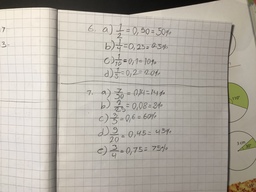 6. a) 1/2 = 0,50 = 50%
b) 1/4 = 0,25 = 25%
c) 1/10 = 0,1 = 10%
d) 1/5 = 0,2 = 20%
7. a) 7/50 = 0,14 = 14%
b) 2/25 = 0,08 = 8%
c) 3/5 = 0,6 = 60%
d) 9/20 = 0,45 = 45%
e) 3/4 = 0,75 = 75%